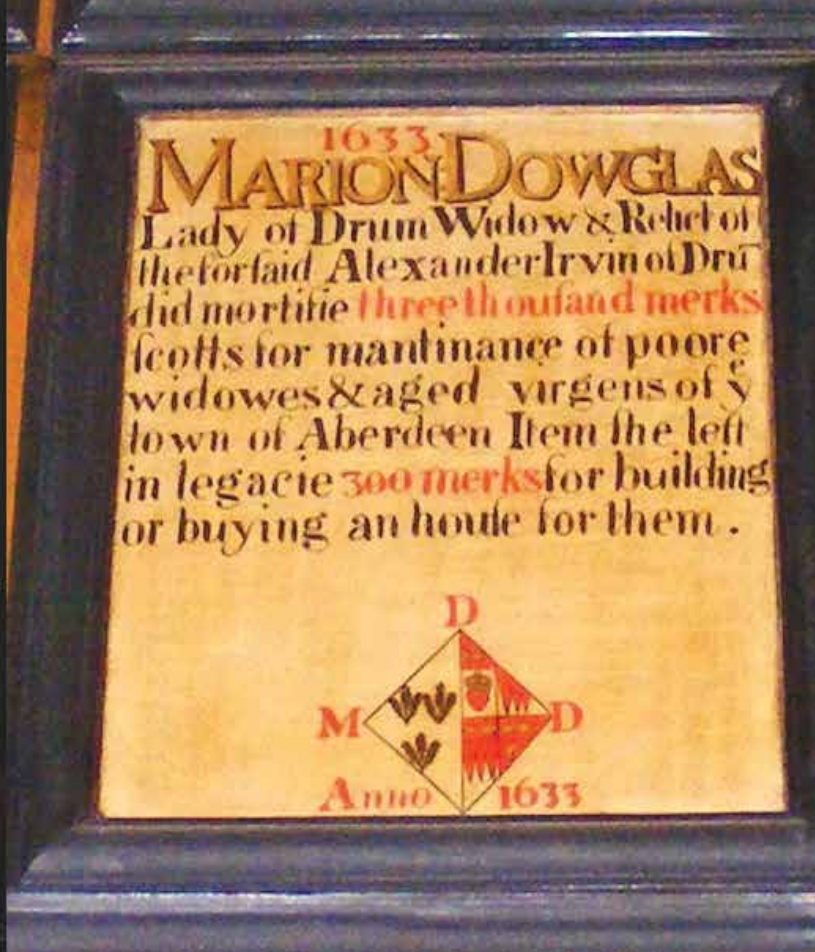 1633
MARION DOWGLAS
Lady of Drum Widow & Relict of
the forſaid Alexander Irvin of Drū
did mortifie three thouſand merks
ſcotts for mantinance of poore
widowes & aged virgens of yͤ
town of Aberdeen Item ſhe left
in legacie 300 merks for building
or buying an houſe for them .
D
M D
Anno 1633